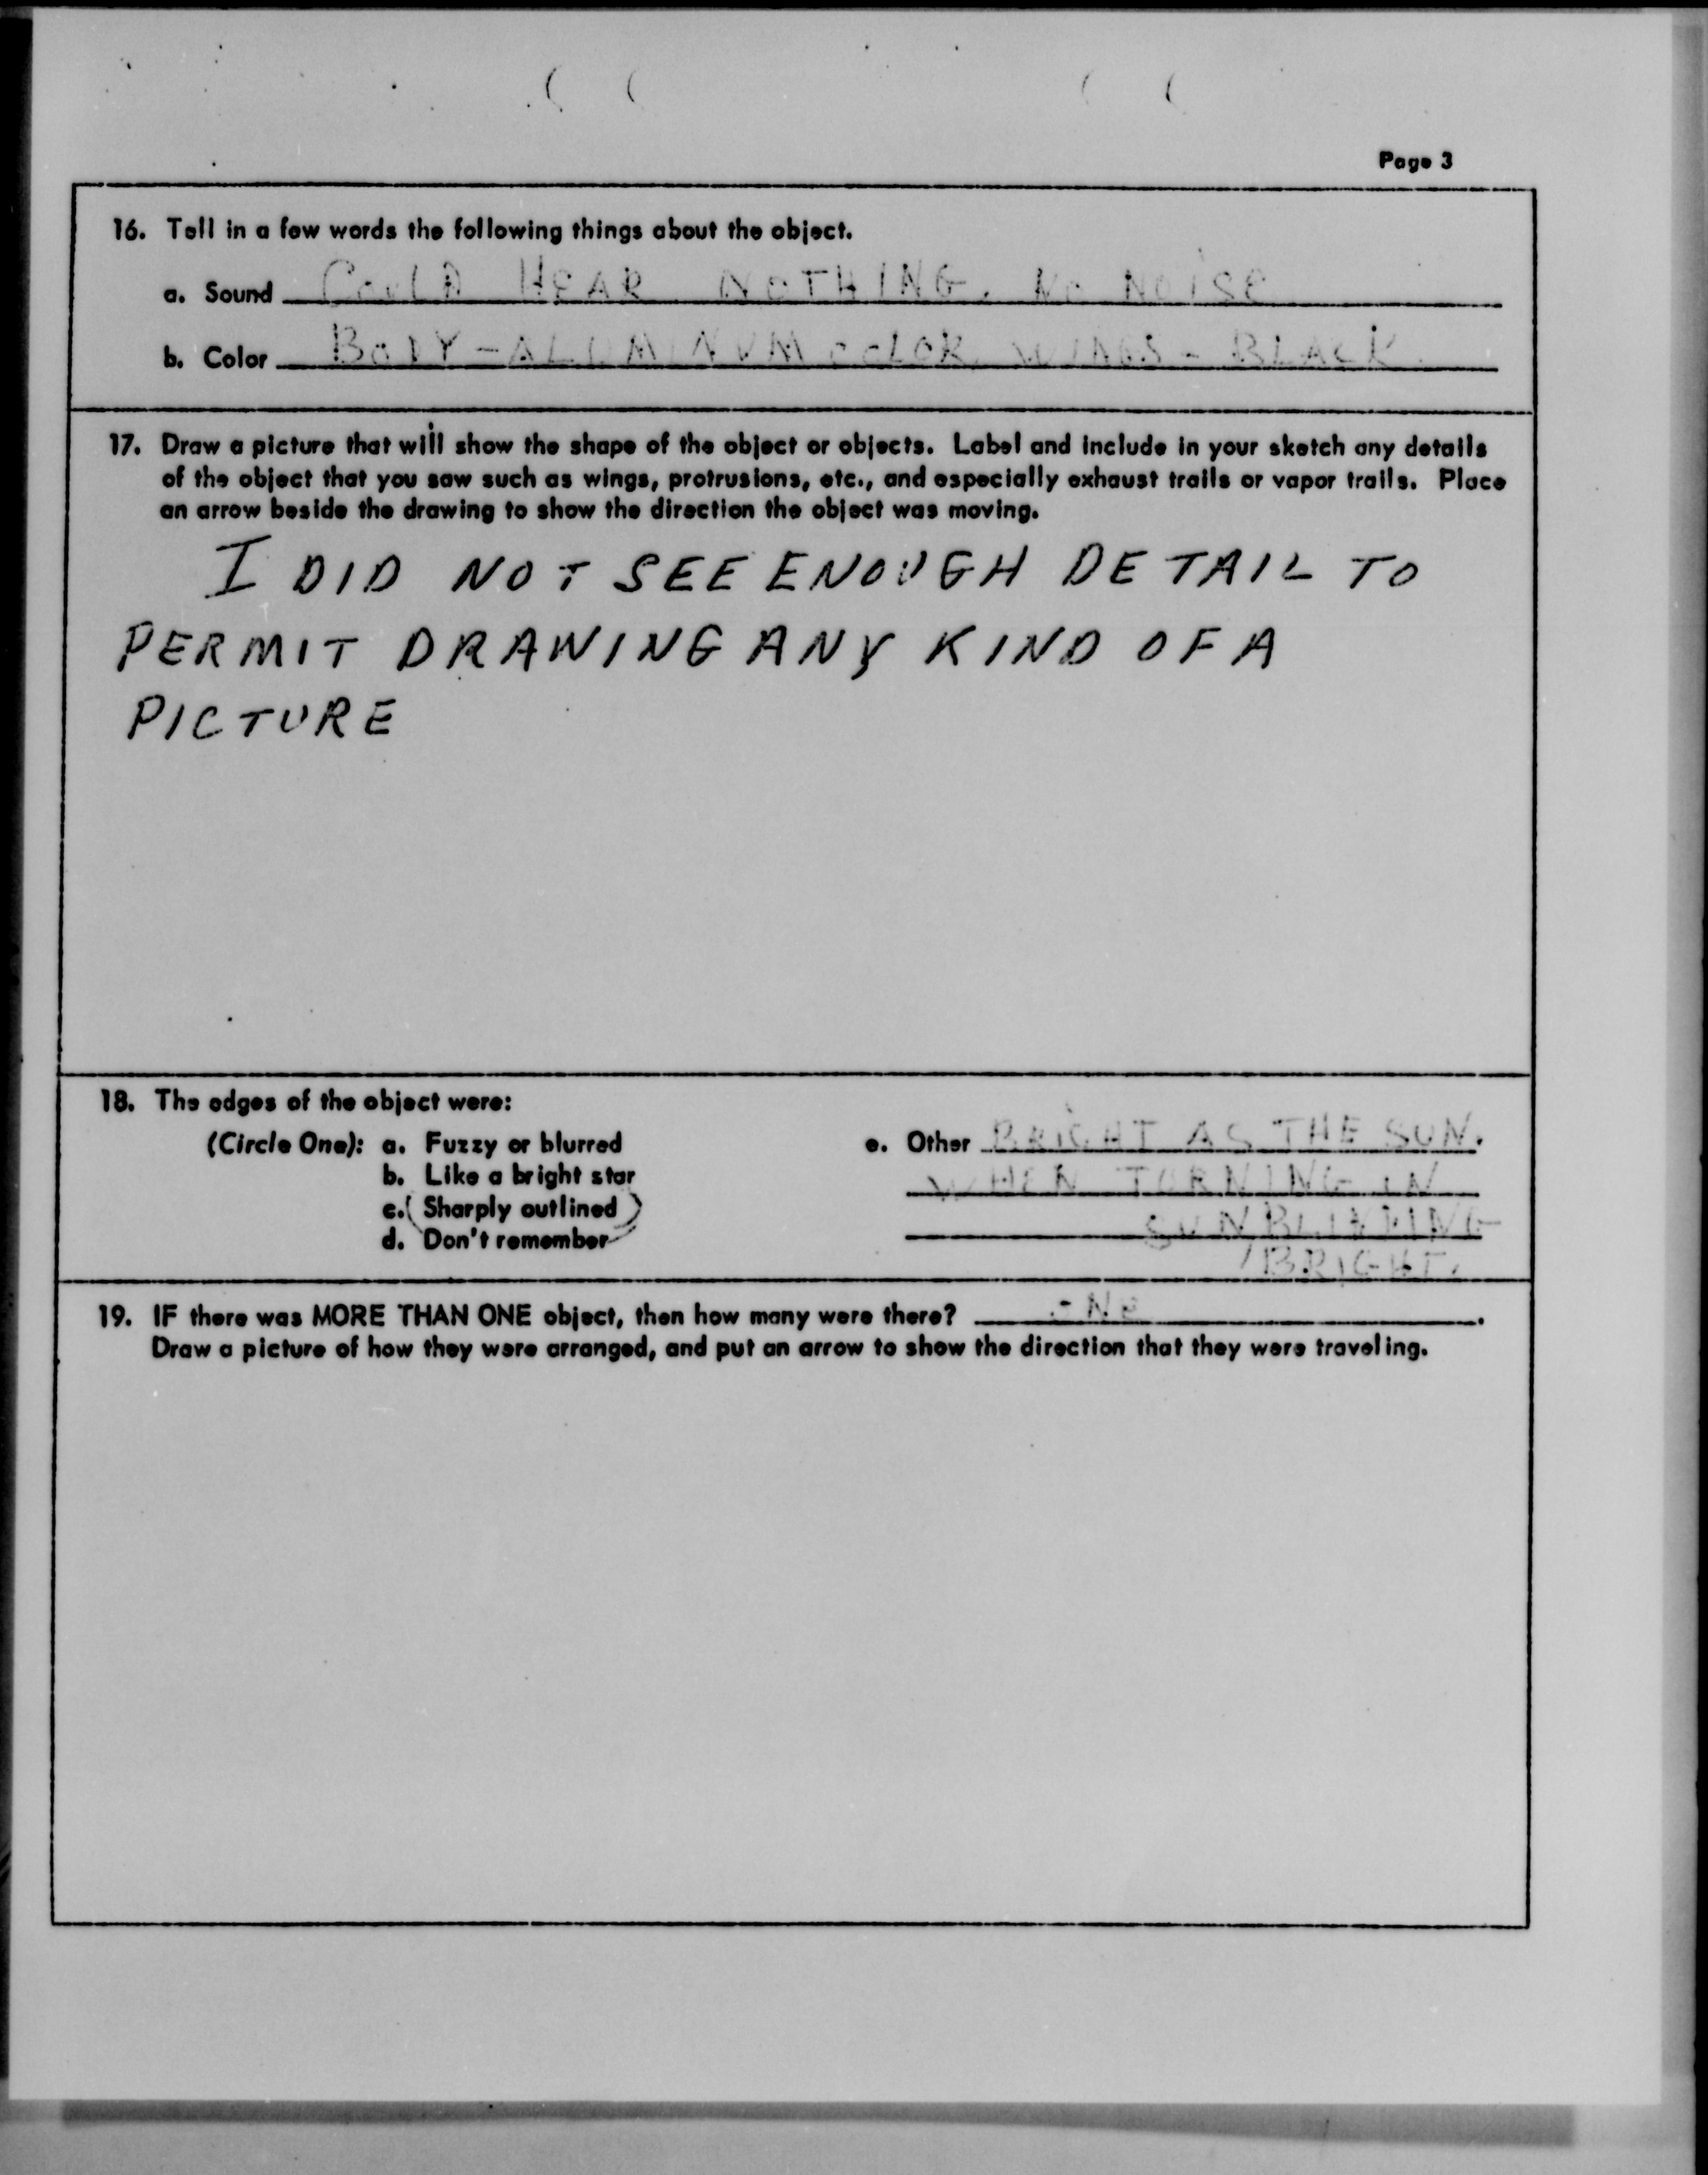 Page 3
16. Tell in a few words the following things about the object.
a. Sound COULD HEAR NOTHING. NO NOISE
b. Color BODY-ALUMINUM COLOR WINGS - BLACK
17. Draw a picture that will show the shape of the object or objects. Label and include in your sketch any details
of the object that you saw such as wings, protrusions, etc., and especially exhaust trails or vapor trails. Place
an arrow beside the drawing to show the direction the object was moving.
I DID NOT SEE ENOUGH DETAIL TO
PERMIT DRAWING ANY KIND OF A
PICTURE
18. The edges of the object were:
(Circle One): a. Fuzzy or blurred
b. Like a bright star
c. Sharply outlined
d. Don't remember
e. Other BRIGHT AS THE SUN.
WHEN TURNING IN
SUN BLINDING
BRIGHT.
19. IF there was MORE THAN ONE object, then how many were there?
Draw a picture of how they were arranged, and put an arrow to show the direction that they were traveling.